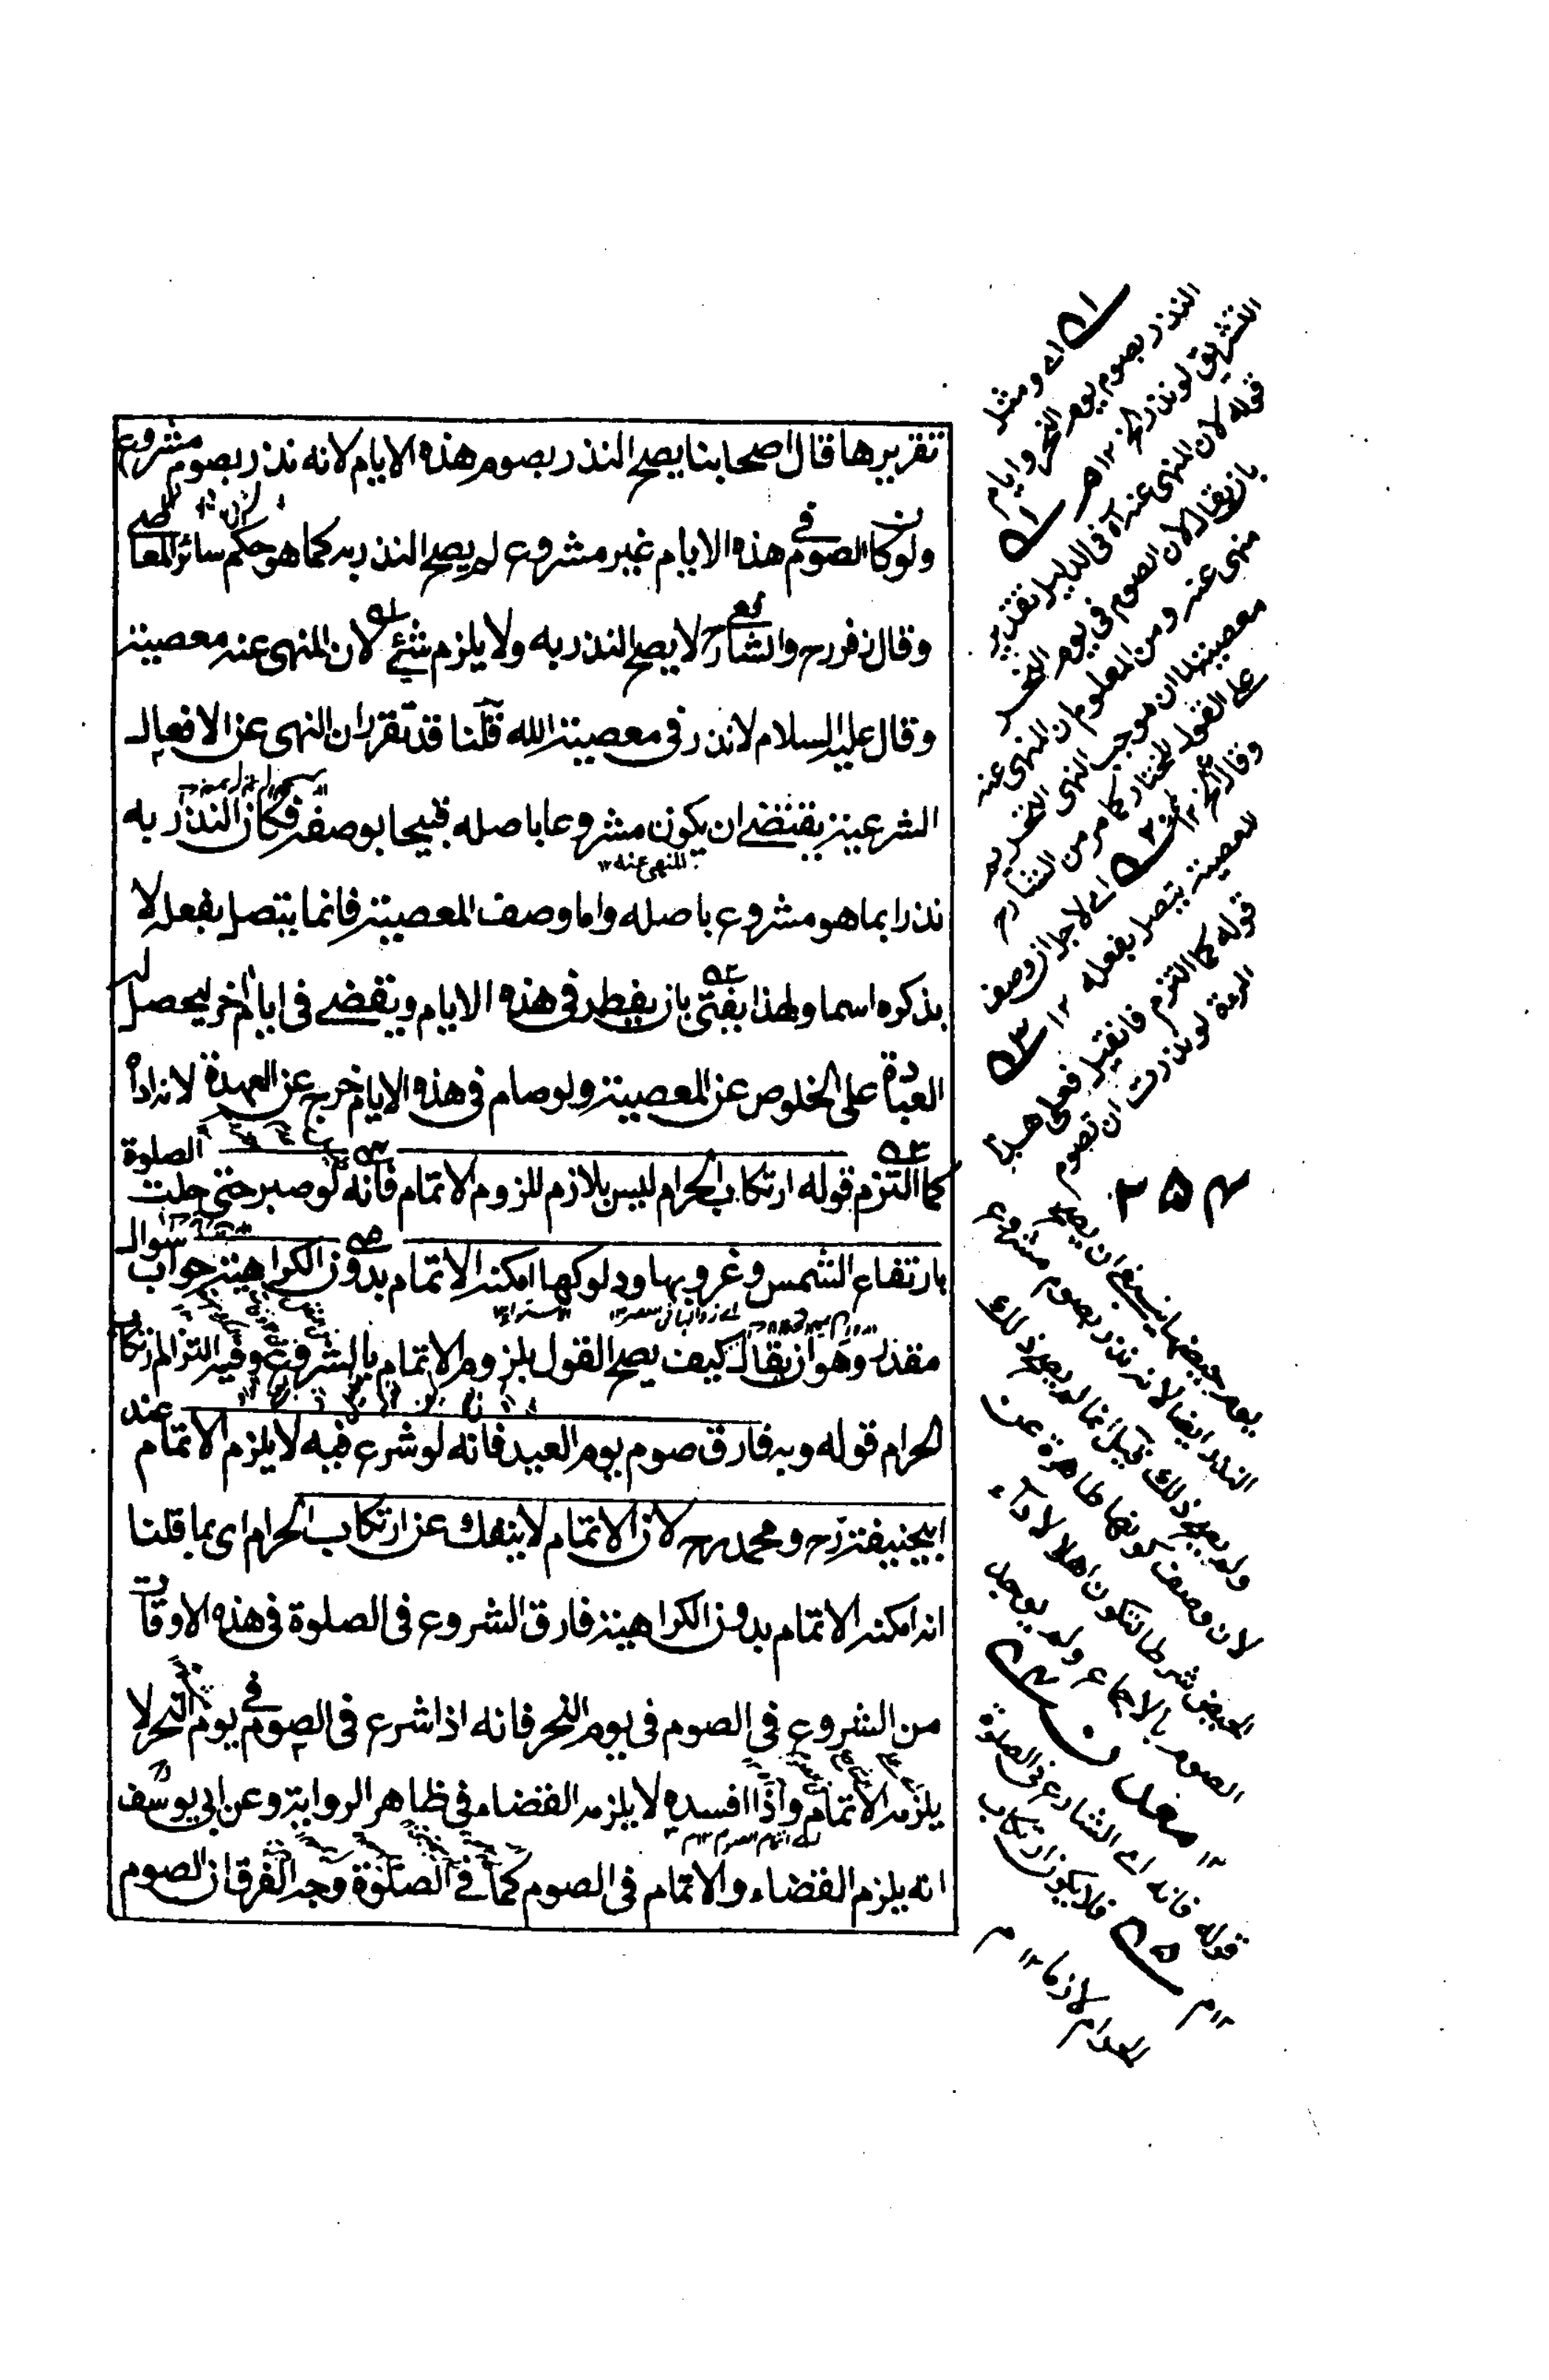 تقريرها قال اصحابنا يصح النذر بصوم هذه الايام لانه نذر بصوم مشروع
ولو كان الصوم في هذه الايام غير مشروع لم يصح النذر به كما هو حكم سائر المعاصي
وقال زفر رح والشافعي رح لا يصح النذر به ولا يلزم شئ لان المنهى عنه معصية
وقال عليه السلام لا نذر في معصية الله قلنا قد تقرر ان النهى عن الافعال
الشرعية يقتضے ان يكون مشروعا باصله قبيحا بوصفه فكان النذر به
المنهى عنه ١٢
نذرا بما هو مشروع باصله واما وصف المعصية فانما يتصل بفعله لا
بذكره اسما ولهذا يفتى بان يفطر في هذه الايام ويقضے في ايام اخر ليحصل له
العبادة على الخلوص عن المعصية ولو صام في هذه الايام خرج عن العهدة لانه اداه
كما التزم قوله ارتكاب الحرام ليس بلازم للزوم الاتمام فانه لو صبر حتى حلت الصلوة
بارتفاع الشمس وغروبها ودلوكها امكنه الاتمام بدون الكراهية جواب سوال
مقدر وهو ان يقال كيف يصح القول بلزوم الاتمام بالشروع وفيه التزام ارتكاب
الحرام قوله وبه فارق صوم يوم العيد فانه لو شرع فيه لا يلزم الاتمام عند
ابيحنيفة رح ومحمد رح لان الاتمام لا ينفك عن ارتكاب الحرام اى بما قلنا
انه امكنه الاتمام بدون الكراهية فارق الشروع في الصلوة في هذه الاوقات
من الشروع في الصوم في يوم النحر فانه اذا شرع في الصوم في يوم النحر لا
يلزمه الاتمام واذا افسده لا يلزمه القضاء في ظاهر الرواية وعن ابي يوسف رح
انه يلزم القضاء والاتمام في الصوم كما في الصلوة وجه الفرق ان الصوم
اے ومثل
النذر بصوم يوم النحر وايام
التشريق لو نذر الخ ١٢
قوله لان المنهى عنه آه في الدليل تقديره
بان يقال لان الصوم في يوم النحر
منهى عنه ومن المعلوم ان المنهى عنه
معصية لما ان موجب النهى التحريم
على القول المختار كما مر من الشارح
وقال الخ ١٢
اے لاجل ان وصف
المعصية يتصل بفعله ١٢
قوله كما التزم فان قيل فعلى هذا
المرءة لو نذرت ان تصوم
٢٥٤
يوم حيضها ينبغى ان يصح
النذر ايضا لانه نذر بصوم مشروع
ولم يصح ذلك قيل انما لم يصح ذلك
لان وصف كونها طاهرة عن
الحيض شرط لتكون اهلا لاداء
الصوم بالاجماع ولم يوجد
١٢ معدن
قوله فانه اے الشارع في الصلوة
١٢ م
فلا يكون ارتكاب
الحرام لازما ١٢ م